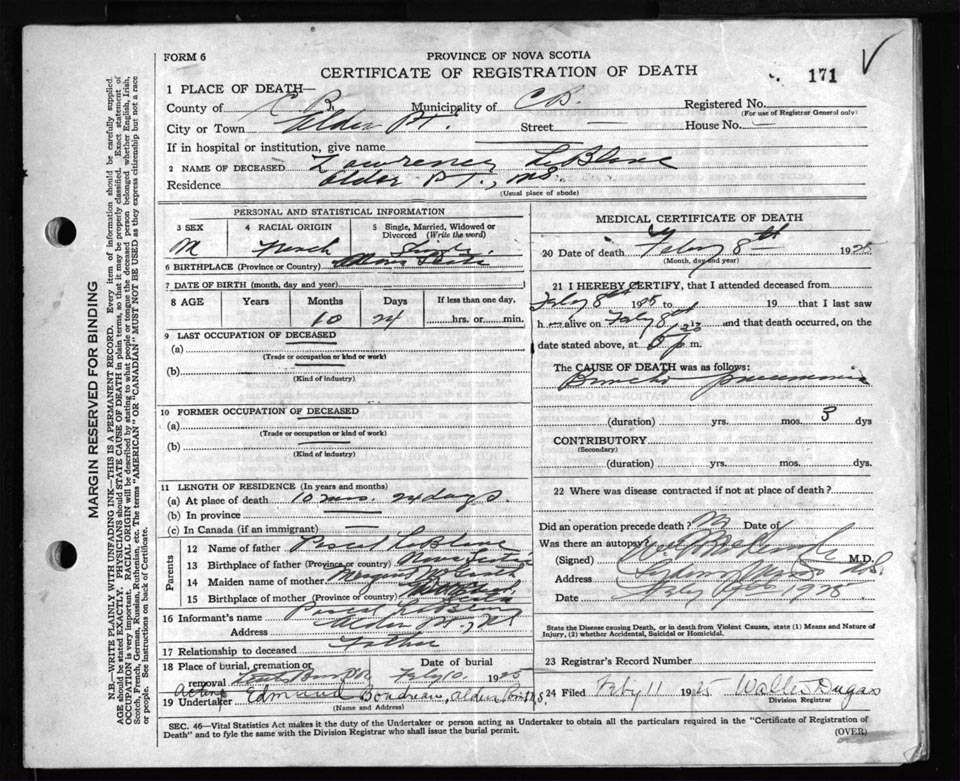 FORM 6
PROVINCE OF NOVA SCOTIA
CERTIFICATE OF REGISTRATION OF DEATH
171
1 PLACE OF DEATH—
County of C B. Municipality of C B. Registered No.
(For use of Registrar General only)
City or Town Alder Pt. Street — House No. —
If in hospital or institution, give name
2 NAME OF DECEASED Lawrence LeBlanc
Residence Alder Pt., N.S.
(Usual place of abode)
PERSONAL AND STATISTICAL INFORMATION
3 SEX 4 RACIAL ORIGIN 5 Single, Married, Widowed or Divorced (Write the word)
M French Single
6 BIRTHPLACE (Province or Country) Nova Scotia
7 DATE OF BIRTH (month, day and year)
8 AGE Years Months Days If less than one day,
10 24 hrs. or min.
9 LAST OCCUPATION OF DECEASED
(a)
(Trade or occupation or kind or work)
(b)
(Kind of industry)
10 FORMER OCCUPATION OF DECEASED
(a)
(Trade or occupation or kind or work)
(b)
(Kind of industry)
11 LENGTH OF RESIDENCE (In years and months)
(a) At place of death 10 mos. 24 days.
(b) In province —
(c) In Canada (if an immigrant)
Parents
12 Name of father LeBlanc
13 Birthplace of father (Province or country) Nova Scotia
14 Maiden name of mother
15 Birthplace of mother (Province or country) Scotia
16 Informant's name LeBlanc
Address Alder Pt., N.S.
17 Relationship to deceased Father
18 Place of burial, cremation or removal Date of burial Feby 10, 1925
Acting
19 Undertaker Edmund Boudreau, Alder Point, N.S.
(Name and Address)
MEDICAL CERTIFICATE OF DEATH
20 Date of death Feby 8th 1925
(Month, day and year)
21 I HEREBY CERTIFY, that I attended deceased from
Feby 8th 1925 to 19 that I last saw
h alive on Feby 8th and that death occurred, on the
date stated above, at p.m.
The CAUSE OF DEATH was as follows:
Broncho pneumonia
(duration) yrs. mos. 3 dys
CONTRIBUTORY
(Secondary)
(duration) yrs. mos. dys.
22 Where was disease contracted if not at place of death?
Did an operation precede death? No Date of
Was there an autopsy?
(Signed) M.D.
Address
Date 1925
State the Disease causing Death, or in death from Violent Causes, state (1) Means and Nature of Injury, (2) whether Accidental, Suicidal or Homicidal.
23 Registrar's Record Number
24 Filed Feby 11 1925 Walter Dugas
Division Registrar
SEC. 46—Vital Statistics Act makes it the duty of the Undertaker or person acting as Undertaker to obtain all the particulars required in the "Certificate of Registration of
Death" and to fyle the same with the Division Registrar who shall issue the burial permit.
(OVER)
MARGIN RESERVED FOR BINDING
N.B.—WRITE PLAINLY WITH UNFADING INK—THIS IS A PERMANENT RECORD. Every item of information should be carefully supplied.
AGE should be stated EXACTLY. PHYSICIANS should STATE CAUSE OF DEATH in plain terms, so that it may be properly classified. Exact statement of
OCCUPATION is very important. RACIAL ORIGIN will be described by stating to what people or tongue the deceased person belonged, whether English, Irish,
Scotch, French, German, Russian, Ruthenian, etc. The terms "AMERICAN" or "CANADIAN" MUST NOT BE USED as they express citizenship but not a race
or people. See instructions on back of Certificate.